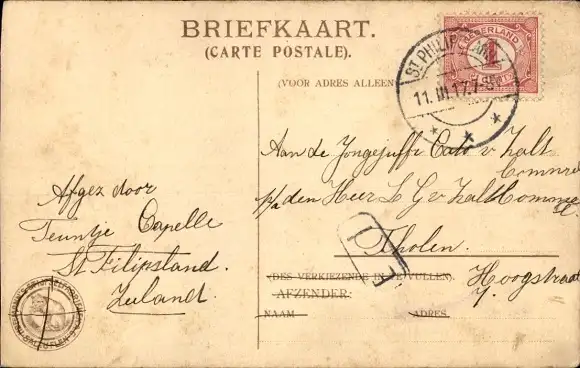 BRIEFKAART.
(CARTE POSTALE).
(VOOR ADRES ALLEEN
NEDERLAND
1
ST PHILIPSLAND
11.III.17.7-8
Afgez door
Teuntje Capelle
St Filipsland.
Zeeland.
Aan de Jongejuffr Cato v Halt
p/a den Heer L G v Halt Commies
Tholen.
Hoogstraat
(DES VERKIEZENDE IN TE VULLEN).
AFZENDER:
NAAM
ADRES